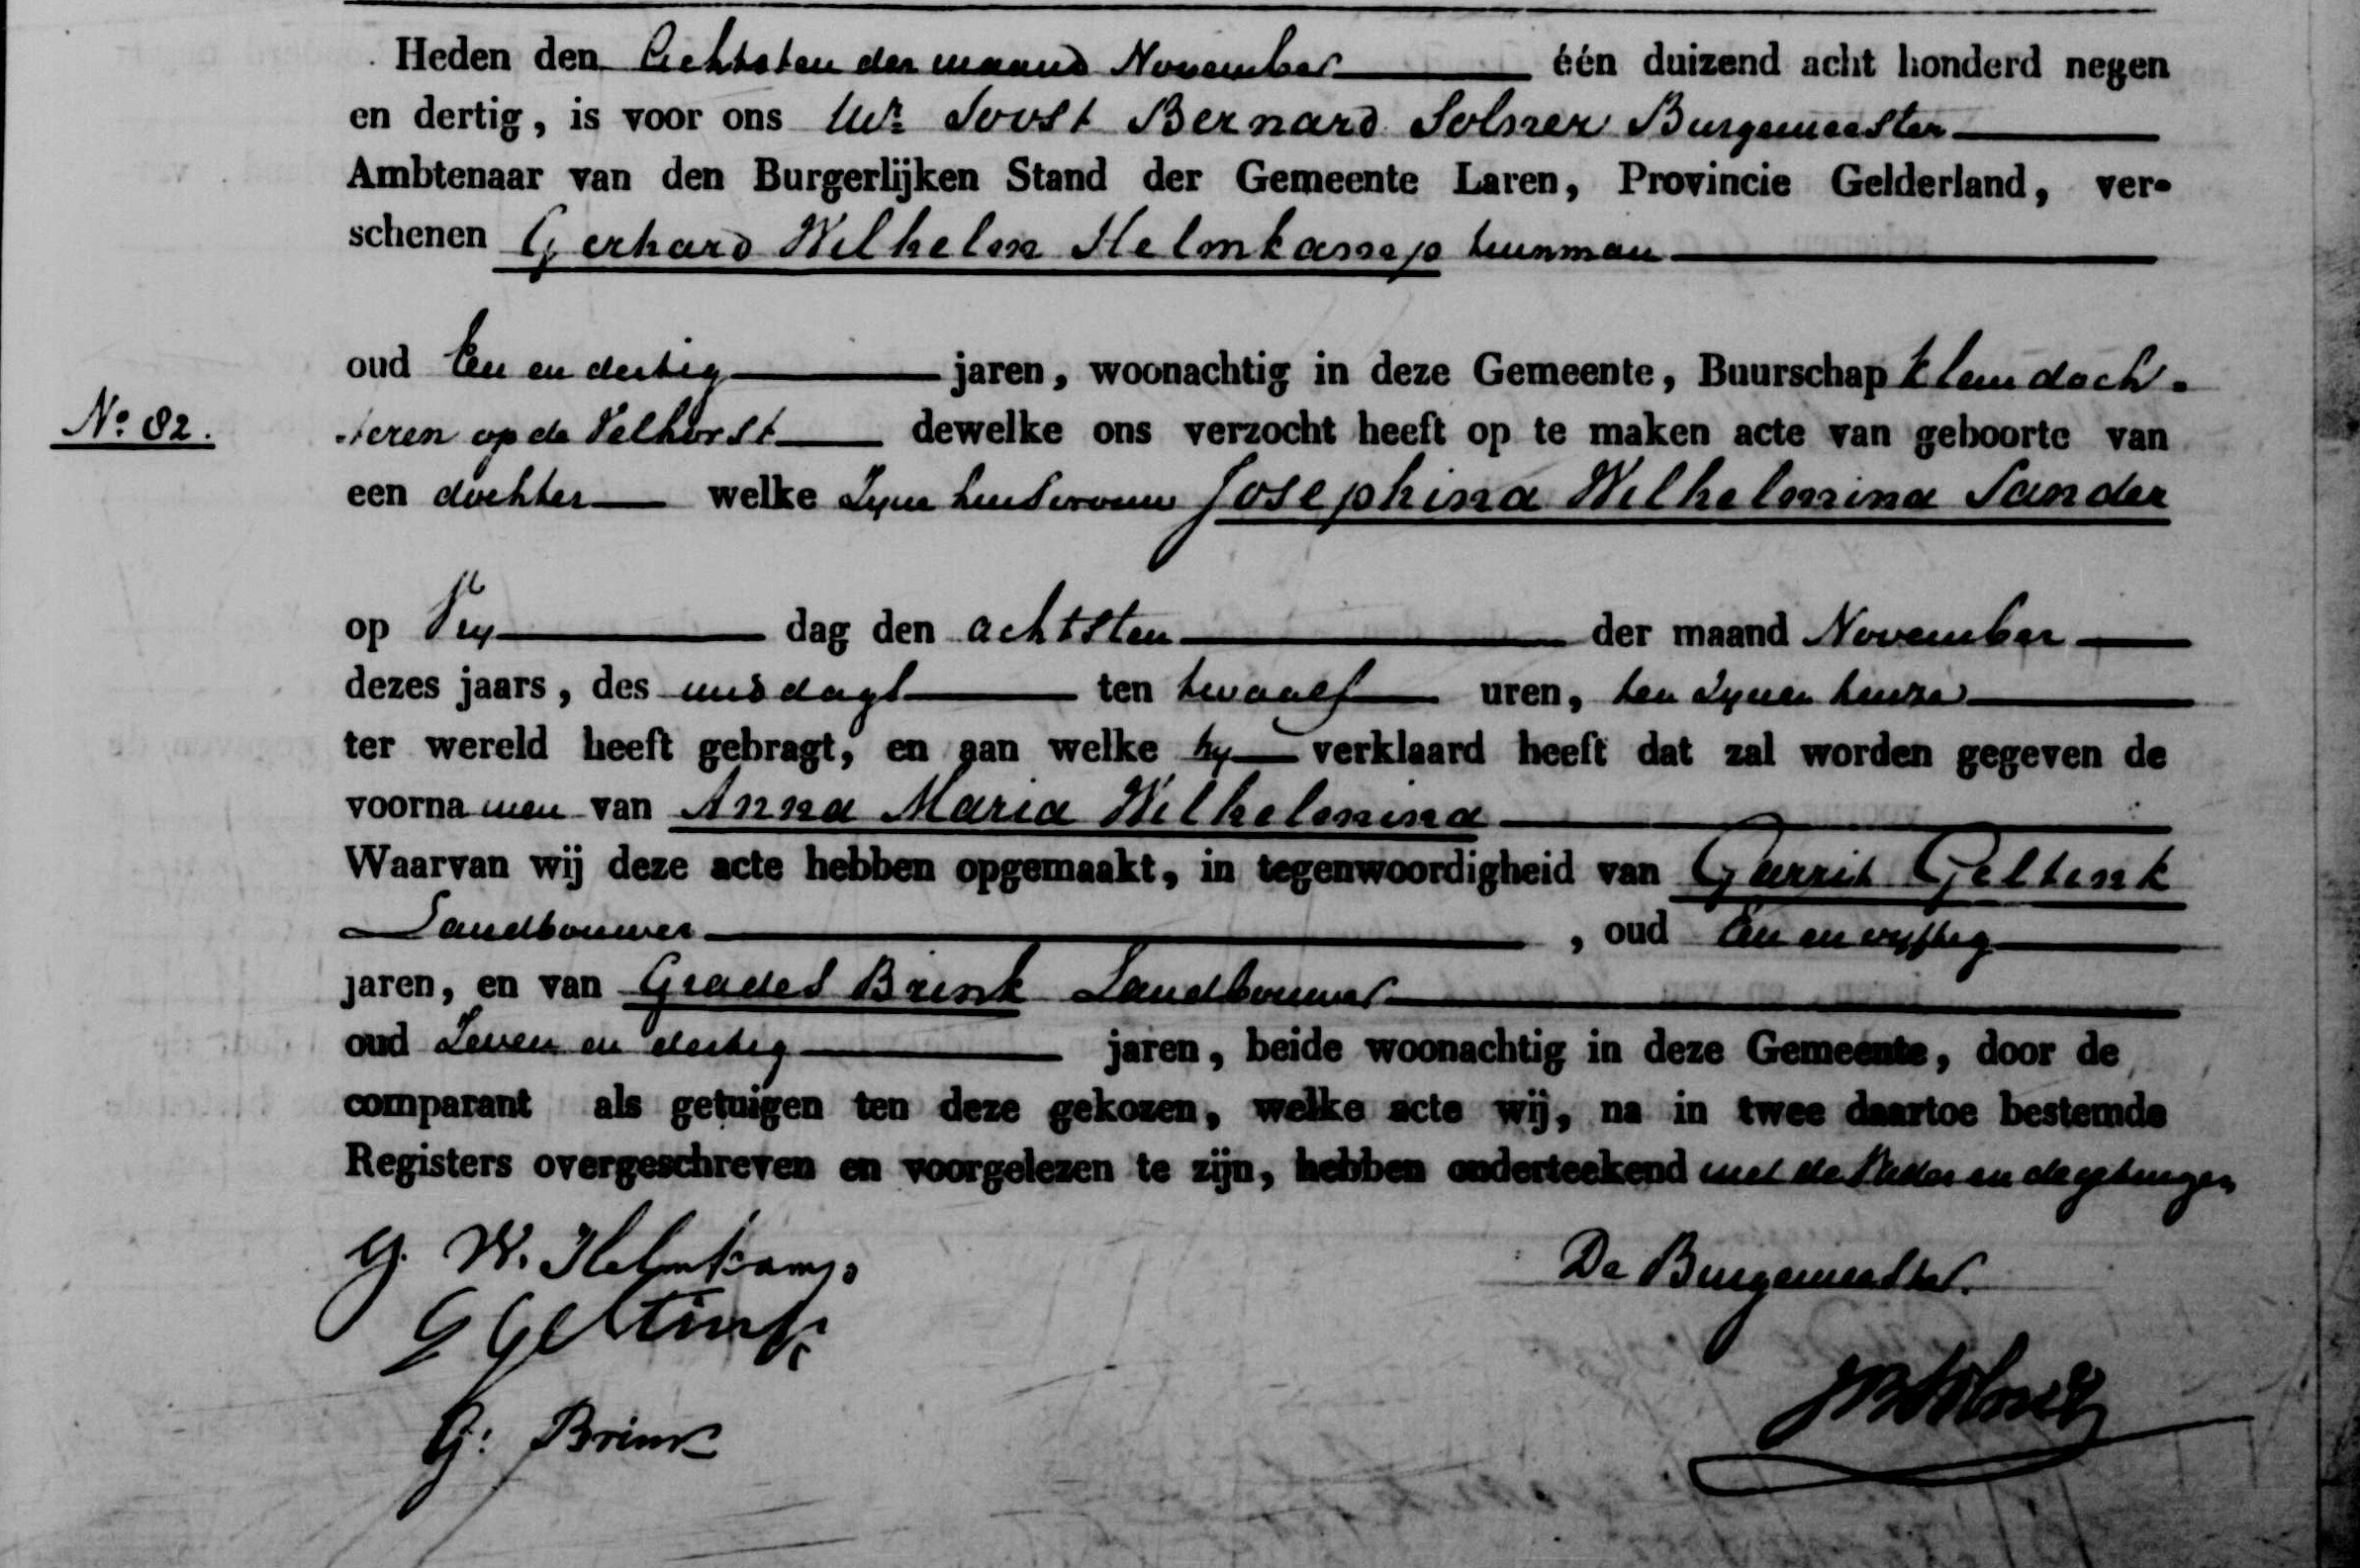 Heden den Achtsten der maand November één duizend acht honderd negen
en dertig, is voor ons Mr Joost Bernard Solner Burgemeester
Ambtenaar van den Burgerlijken Stand der Gemeente Laren, Provincie Gelderland, ver-
schenen Gerhard Wilhelm Helmkamp tuinman
oud Een en dertig jaren, woonachtig in deze Gemeente, Buurschap klein doch-
No 82.
-teren op de Velhorst dewelke ons verzocht heeft op te maken acte van geboorte van
een dochter welke zyne huisvrouw Josephina Wilhelmina Sander
op Vry dag den achtsten der maand November
dezes jaars, des middags ten twaalf uren, ten zynen huize
ter wereld heeft gebragt, en aan welke hy verklaard heeft dat zal worden gegeven de
voornamen van Anna Maria Wilhelmina
Waarvan wij deze acte hebben opgemaakt, in tegenwoordigheid van Garrit Geltink
Landbouwer, oud Een en vyftig
jaren, en van Grades Brink Landbouwer
oud Zeven en dertig jaren, beide woonachtig in deze Gemeente, door de
comparant als getuigen ten deze gekozen, welke acte wij, na in twee daartoe bestemde
Registers overgeschreven en voorgelezen te zijn, hebben onderteekend met de Vader en de getuigen
G. W. Helmkamp
De Burgemeester.
G Geltink
JB Solner
G: Brink